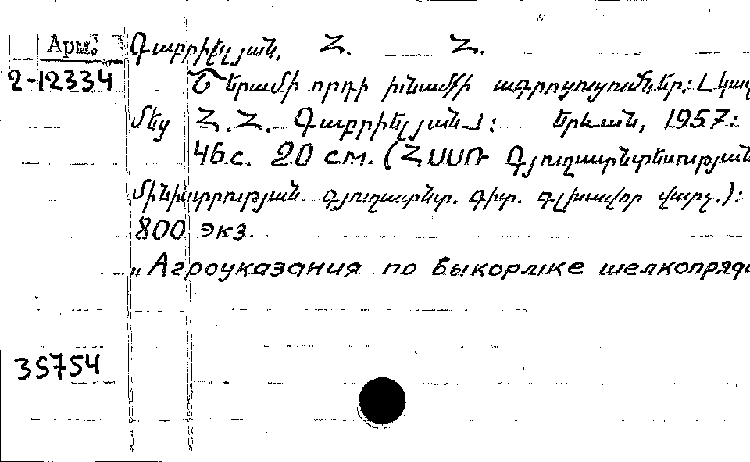 Арм. Գաբրիելյան, Հ. Հ.
2-12334 Շերամի որդի խնամքի ագրոցուցումներ: Կազ
մեց Հ. Հ. Գաբրիելյանը: Երևան, 1957:
46 с. 20 см. (ՀՍՍՌ Գյուղատնտեսության
մինիստրության գյուղատնտ. գիտ. գլխավոր վարչ.):
800 экз.
„Агроуказания по выкормке шелкопряда
35754